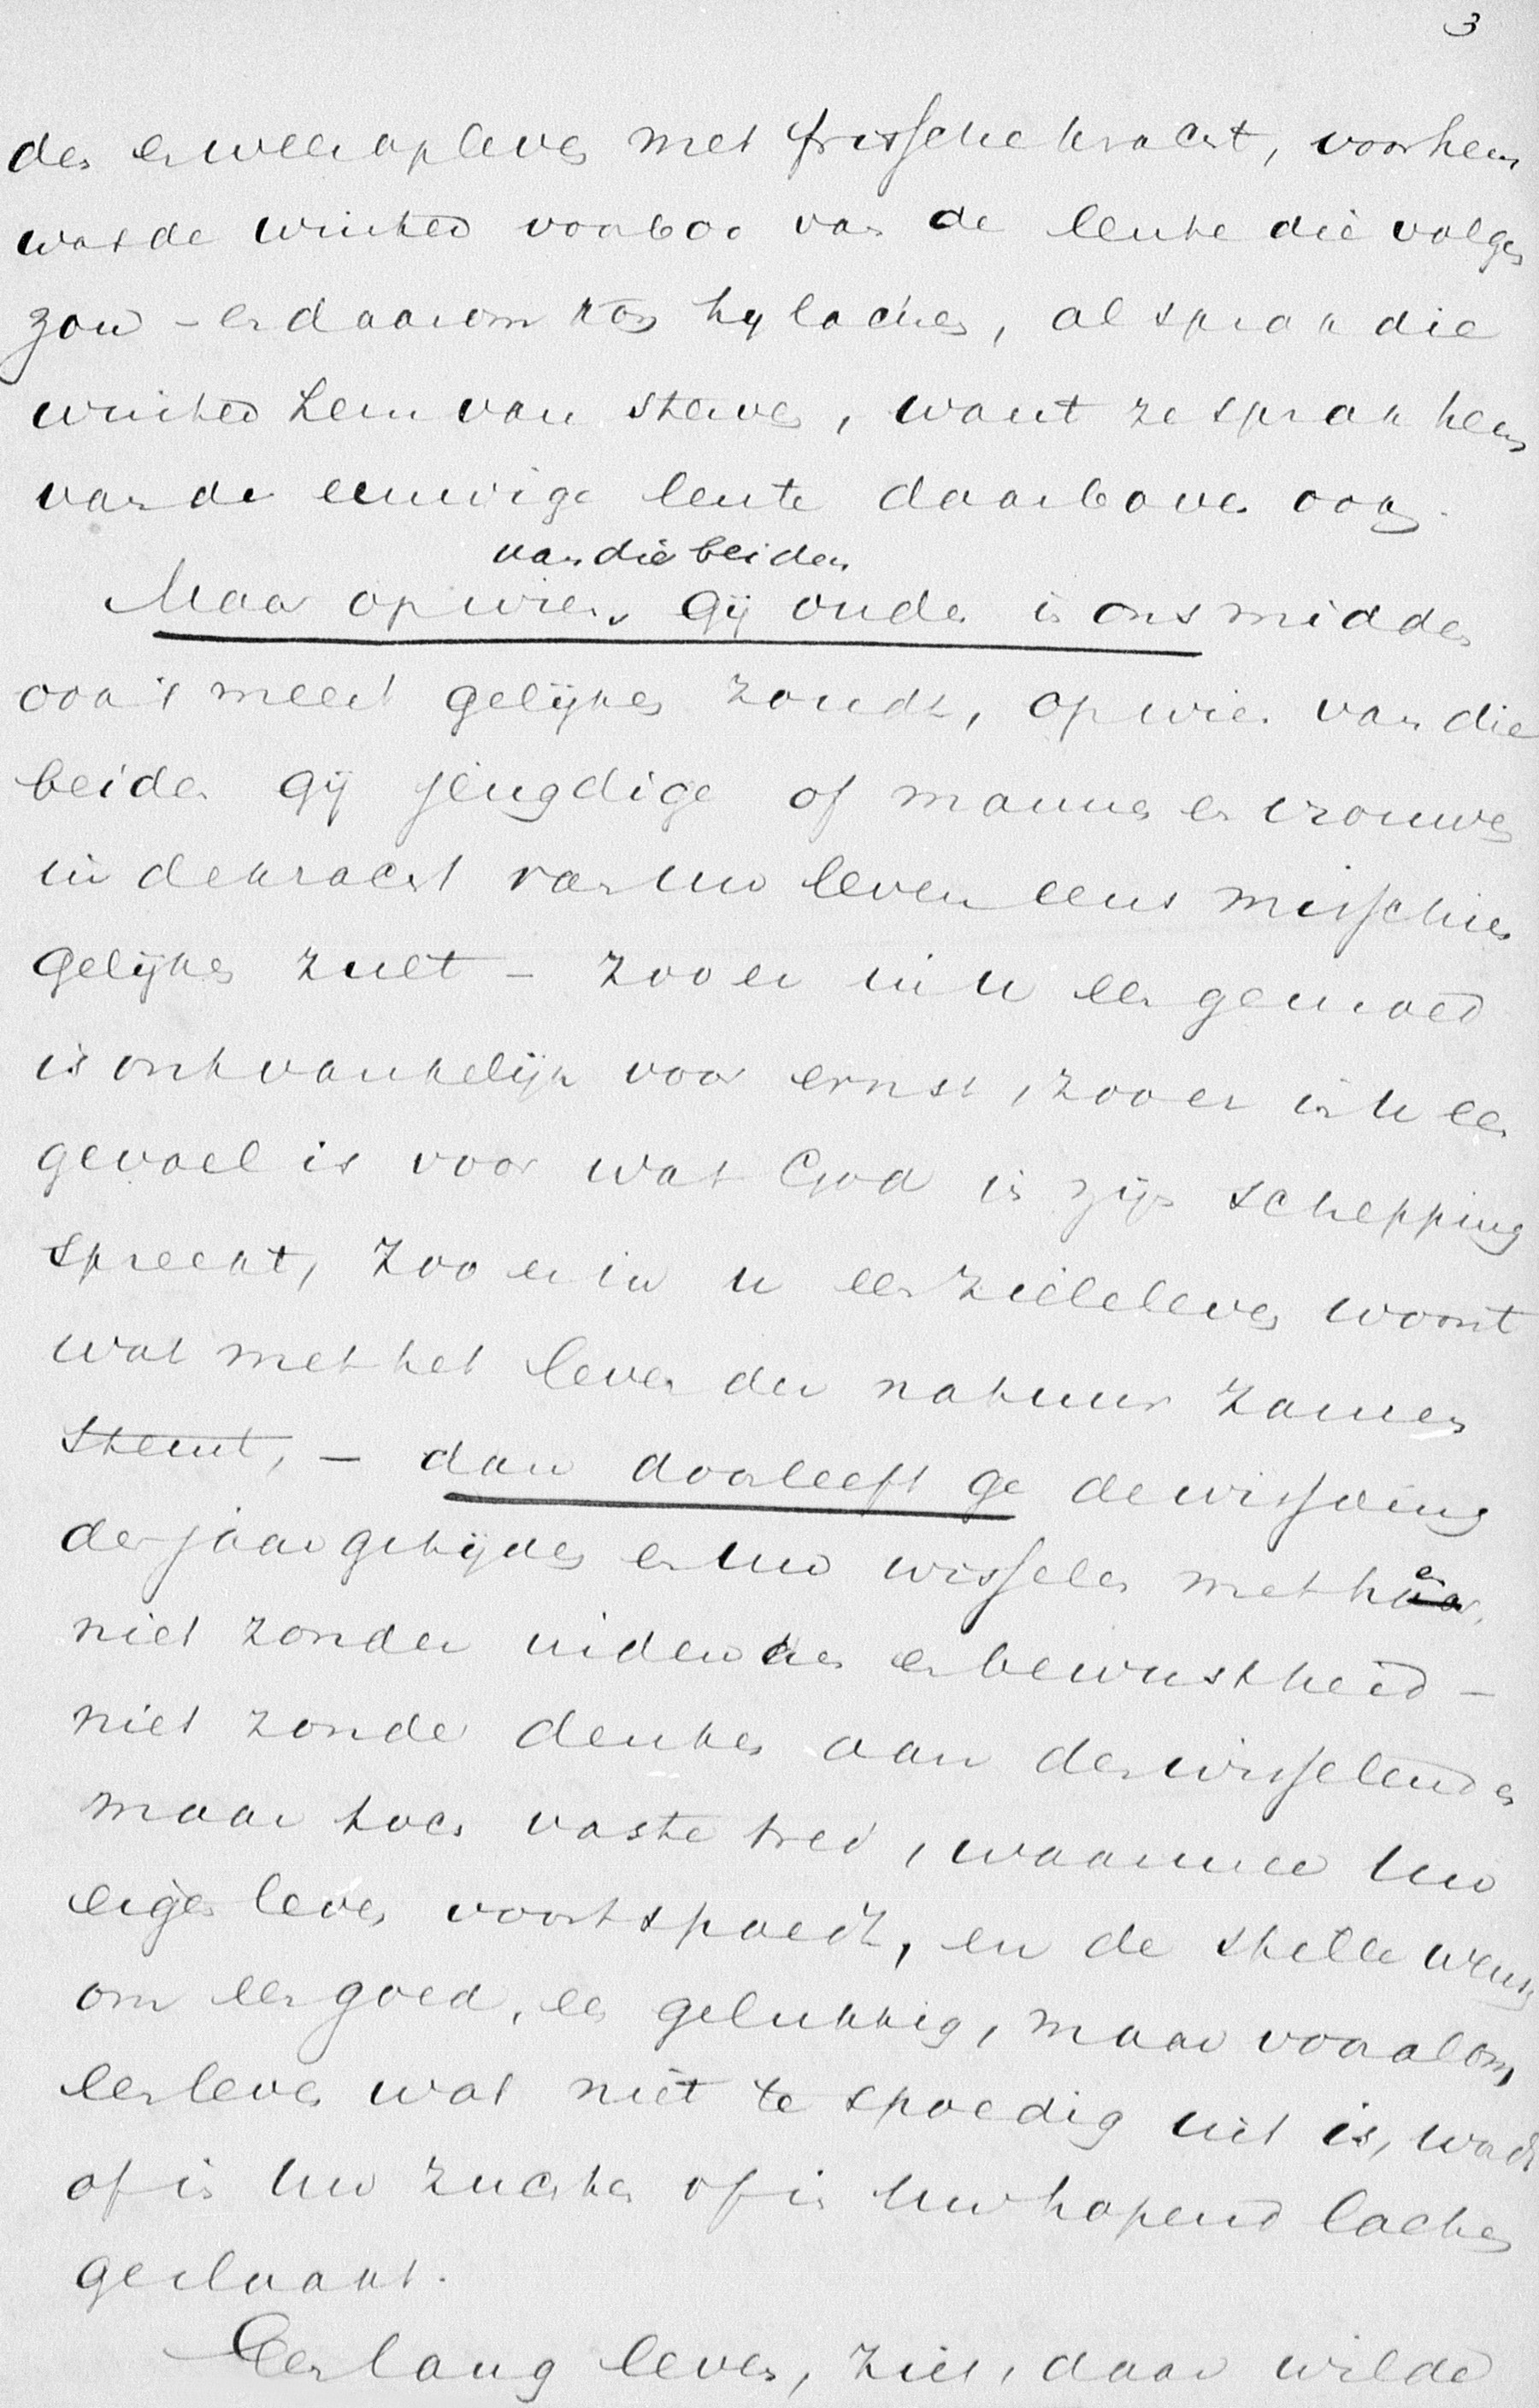 3
den en weer opleven met frissche kracht, voor hem
was de winter voorboo van de lente die volgen
zou - en daarom kon hy lachen, al sprak die
winter hem van sterven, want ze sprak hem
van de eeuwige lente daarboven ook.
van die beiden
Maar op wien gij ouden in ons midden
ook 't meest gelijken zoudt, op wien van die
beiden gij jeugdige of mannen en vrouwen
in de kracht van uw leven eens misschien
gelijken zult - zoo er in u een gemoed
is ontvankelijk voor ernst, zoo er in u een
gevoel is voor wat God in zijn schepping
spreekt, zoo er in u een zieleleven woont
wat met het leven der natuur zamen
stemt, - dan doorleeft ge de wisseling
der jaargetijden en uw wisselen met hen
niet zonder nidenken en bewustheid -
niet zonder denken aan den wisselenden
maar toch vaste tred, waarmee uw
eigen leven voortspoedt, en de stille wensch
om een goed, een gelukkig, maar vooral om
een leven wat niet te spoedig uit is, wordt
of in uw zuchten of in uw hopend lachen
geslaakt.
Een lang leven, ziet, daar wilde